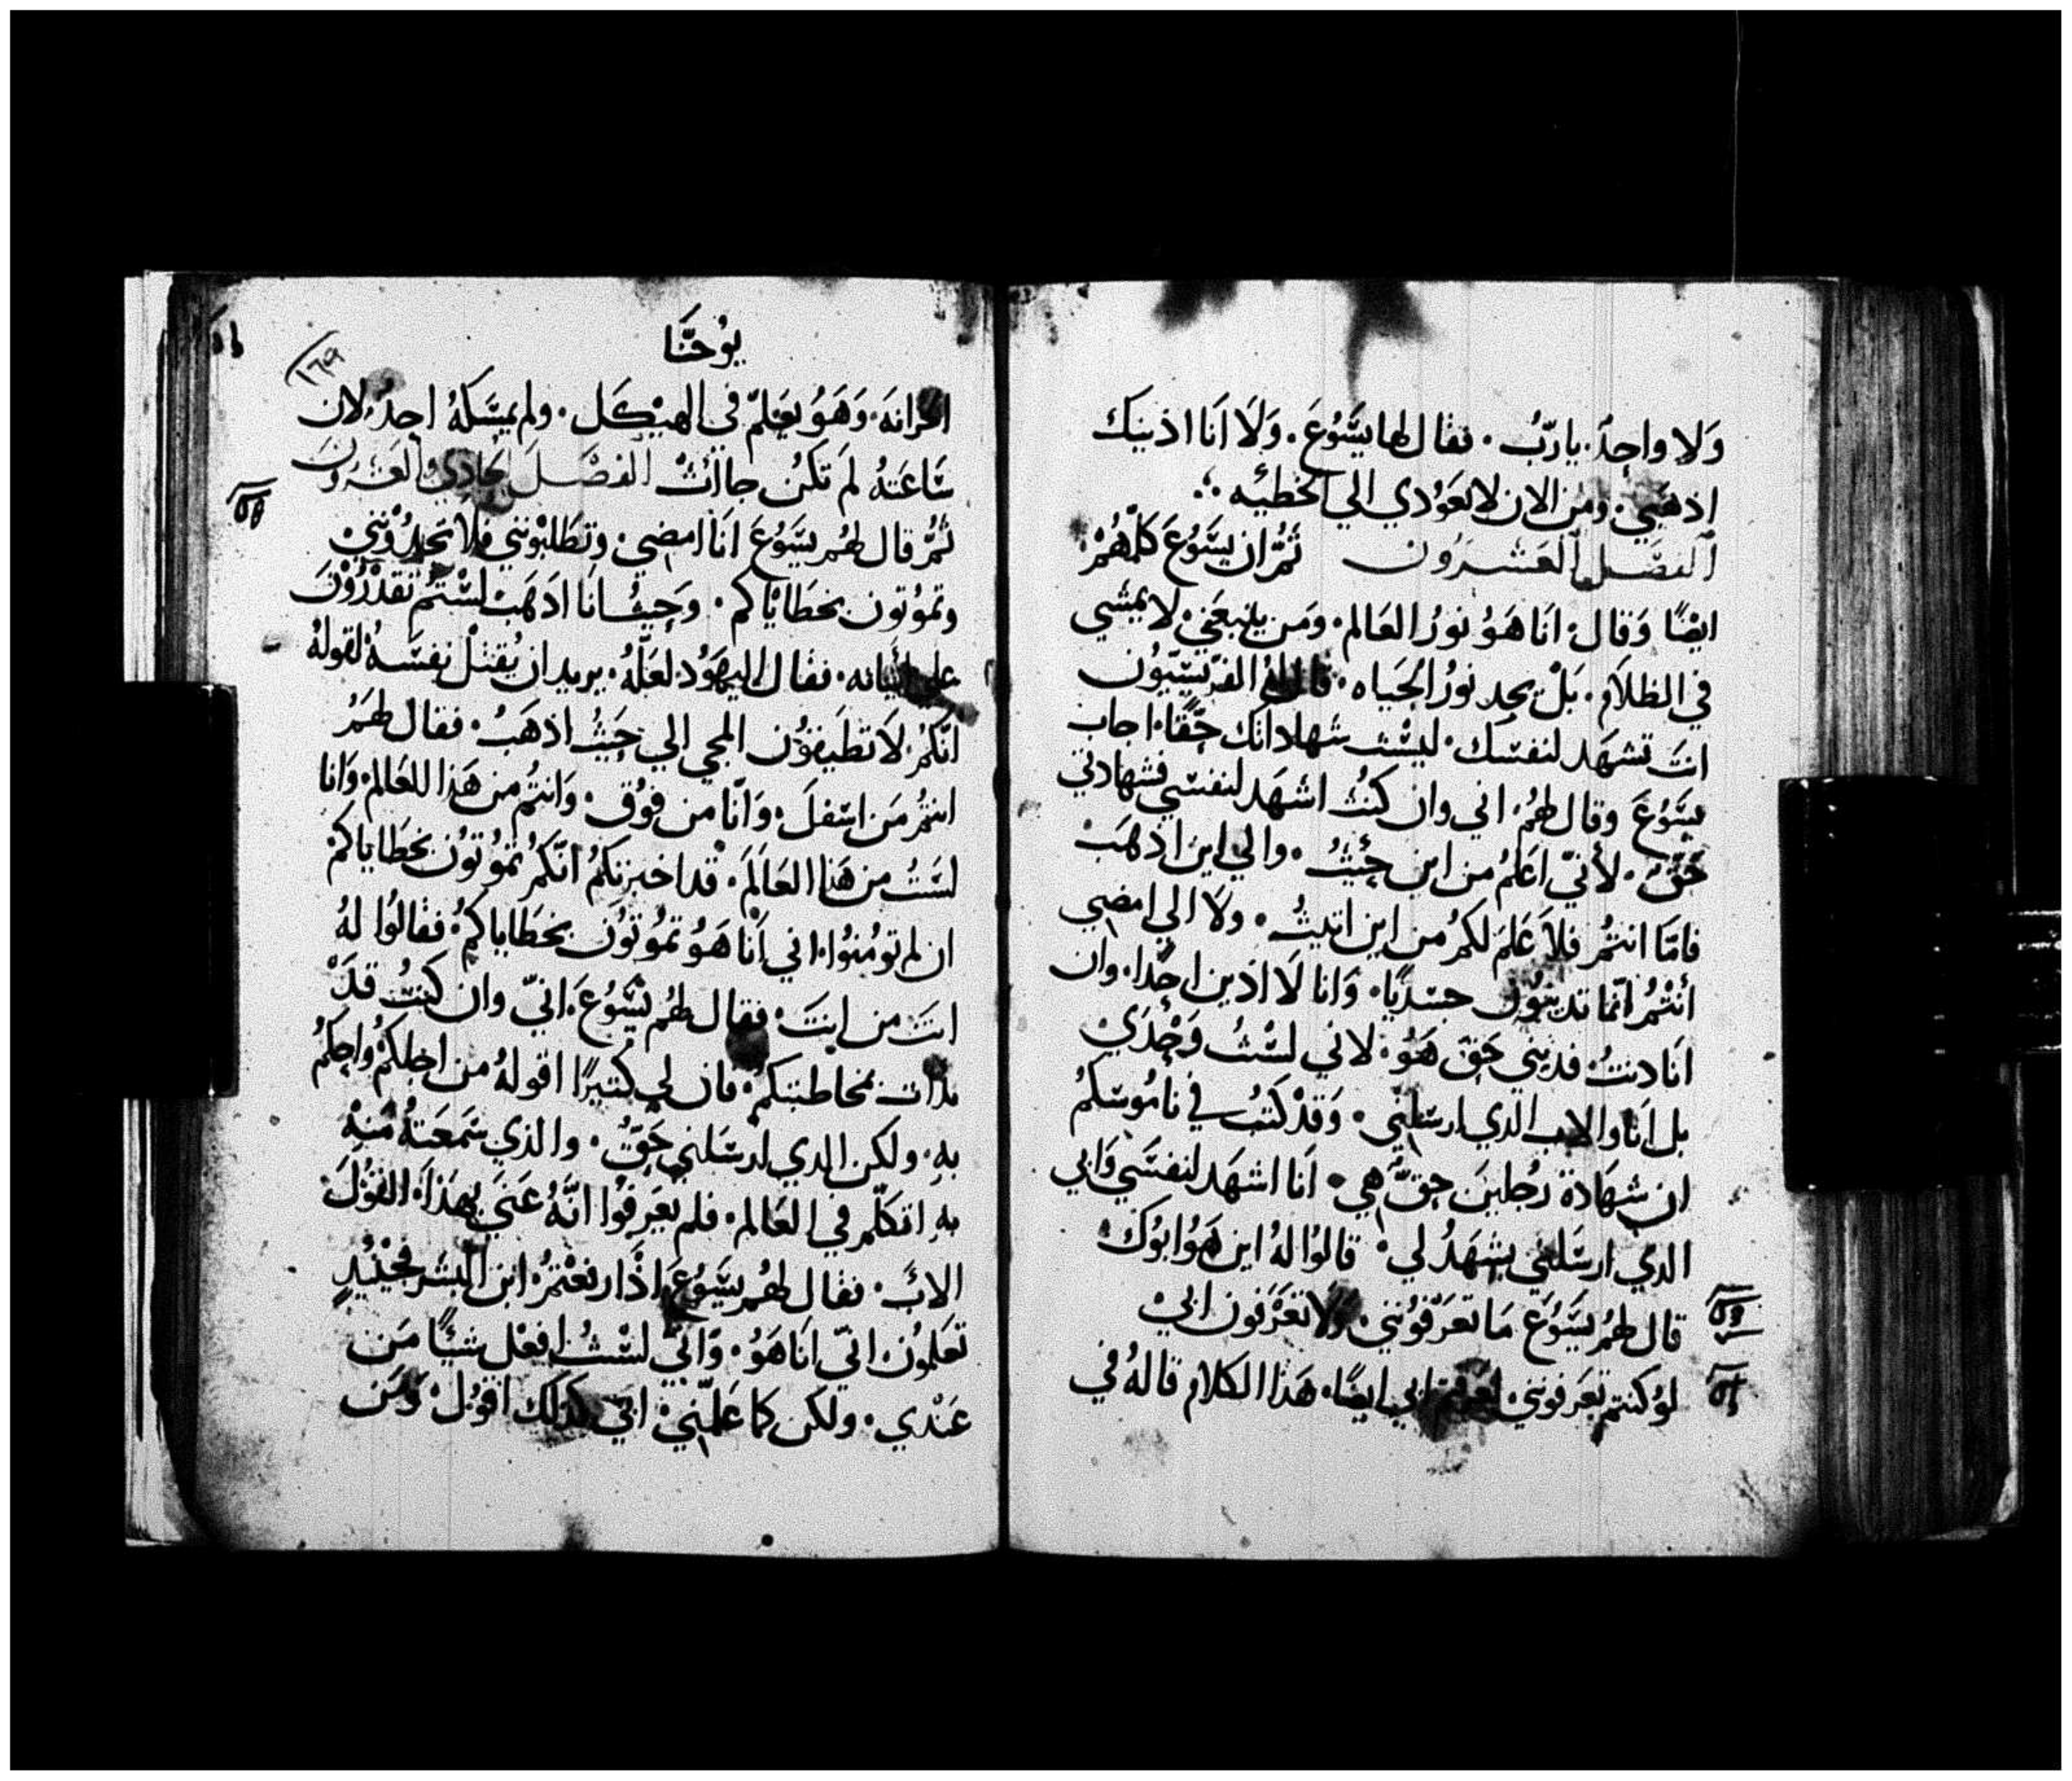 وَلا واحِدٌ. يا ربُّ. فقال لها يسُّوعَ. وَلَا اَنَا ادينك
اذهَبي. ومن الان لا تعَوُدي الي الخطيئه
الفصَل العَشرون ثمُّ ان يسُّوعَ كلّهُمْ
ايضًا وَقال. انَا هَوُ نورُ العَالم. ومَن يتبعَني. لا يمشي
في الظلاَمِ. بَلْ يجد نورُ الحَياه. قال لهُ الفرّيسّيّوُن
انتَ تشهَد لنفسَك. ليسْت شهاداتك حِقًا. اجاب
يسَوُعَ وقال لهُمُ. اني وان كنتُ اشهَد لنفسّي فشهادتي
حَقّ. لأنيّ اعَلمُ من اين جئيتُ. والي اين اذهَبْ
فامّا انتمُ فلاَ عَلمَ لكمُ من اين اتيتُ. ولا الي امضي
أنتمُ انّما تدينوُن جسَديًا. وَانا لَا ادَين احَدًا. وان
انَا دنتُ فديَني حَقّ هَوُ. لاني لسْتُ وَحْدَي
بل انَا والاب الذي ارسَلني. وَقدْ كتبُ في نامُوسَكمُ
ان شهَادة رجُلينَ حِقّ هي. انَا اشهَد لنفسَّي وَابي
الذي ارسَلني يشهَدُ لي. قالوُا لهُ اين هَوُ ابوُك
قال لهُم يسَّوُعَ مَا تعَرَفوُنني. وَلا تعَرَفون ابيْ
لوُ كنتم تعَرفونني. لعَرفتم ابي ايضًا. هَذا الكلام قالهُ في
يوُحَنَّا
١٦٩
الخزانهَ. وَهَوُ يعَلمّ في الهيْكَل. ولم يمسّكهُ احِدُ. لان
سَاعَتهُ لمَ تكنُ جاأتْ الفصْلَ الحادي والعَشرونَ
ثمُّ قال لهُم يسَّوُعَ انَا امضي. وتطَلبوْنني فلا تجدُوْنني
وتموُتون بخطَايْاكم. وَحَيثُ انَا ادَهَبْ لسْتمُ تقدْرُوْنَ
علي اتيانه. فقال اليهَوُد. لعَلّهُ. يريد ان يُقتلْ نفسّهُ لقولهُ
انّكمُ. لاَ تطَيقوُن المجي الي حَيثُ اذهَبُ. فقال لهَمُ
انتمُ مَن اسَفلَ. وَانّا من فوُق. وَانتمُ من هَذا العَالمْ. وَانا
لسَتُ من هَذا العَالَمَ. قد اخبرتكمُ انّكمُ تموُتوُن بخطَاياكمْ
ان لم توُمنوُا. اني اَنْا هَوُ تموُتوُن بخطَاياكمُ. فقالوُا لهُ
انتَ من انتَ. فقال لهُم يسَّوُعَ. انيّ وان كنتُ قدَْ
بدات بمخاطَبتكمُ. فان لي كثيرًا اقولهُ من اجلكمُ واحِكمُ
بهِ. ولكن الدي ارسَلني حَقّ. والذي سَمعَتهُ مَنهْ
بهِ اتكلّم في العَالم. فلم يعَرفوُا انّهُ عَنيَ بهَذاَ. القوُلَ
الابَ. فقال لهُم يسَّوُعَ اذَا رفعَتمُ. ابن البشر فحْينئيدٍ
تعَلموُن انيّ انَا هَوُ. وَانّي لسْتُ افعَل شيئًا مَن
عَنْدي. ولكن كما عَلّمني. ابيّ كذلك اقوُل. وَمَن